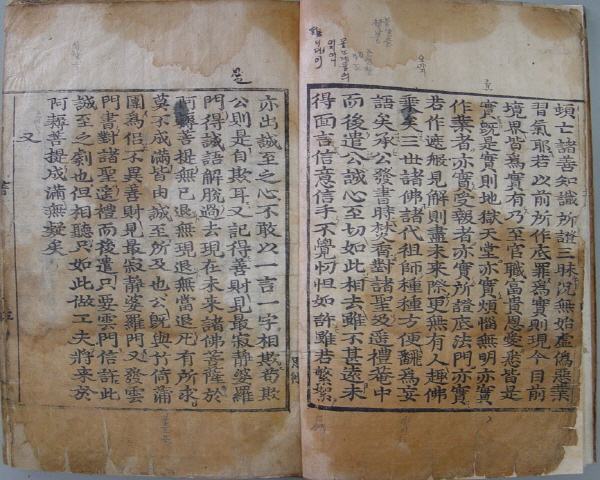 頓亡諸善知識所證三昧況無始虛偽惡業
習氣耶若以前所作底罪爲實則現今目前
境界皆爲實有乃至官職富貴恩愛悉皆是
實旣是實則地獄天堂亦實煩惱無明亦實
作業者亦實受報者亦實所證底法門亦實
若作遮般見解則盡未來際更無有人趣佛
乘矣三世諸佛諸代祖師種種方便翻爲妄
語矣承公發書時焚香對諸聖及遙禮菴中
而後遣公誠心至切如此相去雖不甚遠未
得面言信意信手不覺忉怛如許雖若繁絮
亦出誠至之心不敢以一言一字相欺苟欺
公則是自欺耳又記得善財見最寂靜婆羅
門得誠語解脫過去現在未來諸佛菩薩於
阿耨菩提無已退無現退無當退凡有所求
莫不成滿皆由誠至所及也公旣與竹倚蒲
團爲侶不異善財見最寂靜婆羅門又發雲
門書對諸聖遙禮而後遣只要雲門信許此
誠至之劇也但相聽只如此做工夫將來於
阿耨菩提成滿無疑矣
又